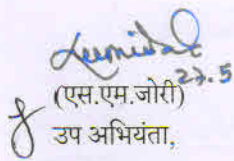 27.5
(एस.एम.जोरी)
उप अभियंता,